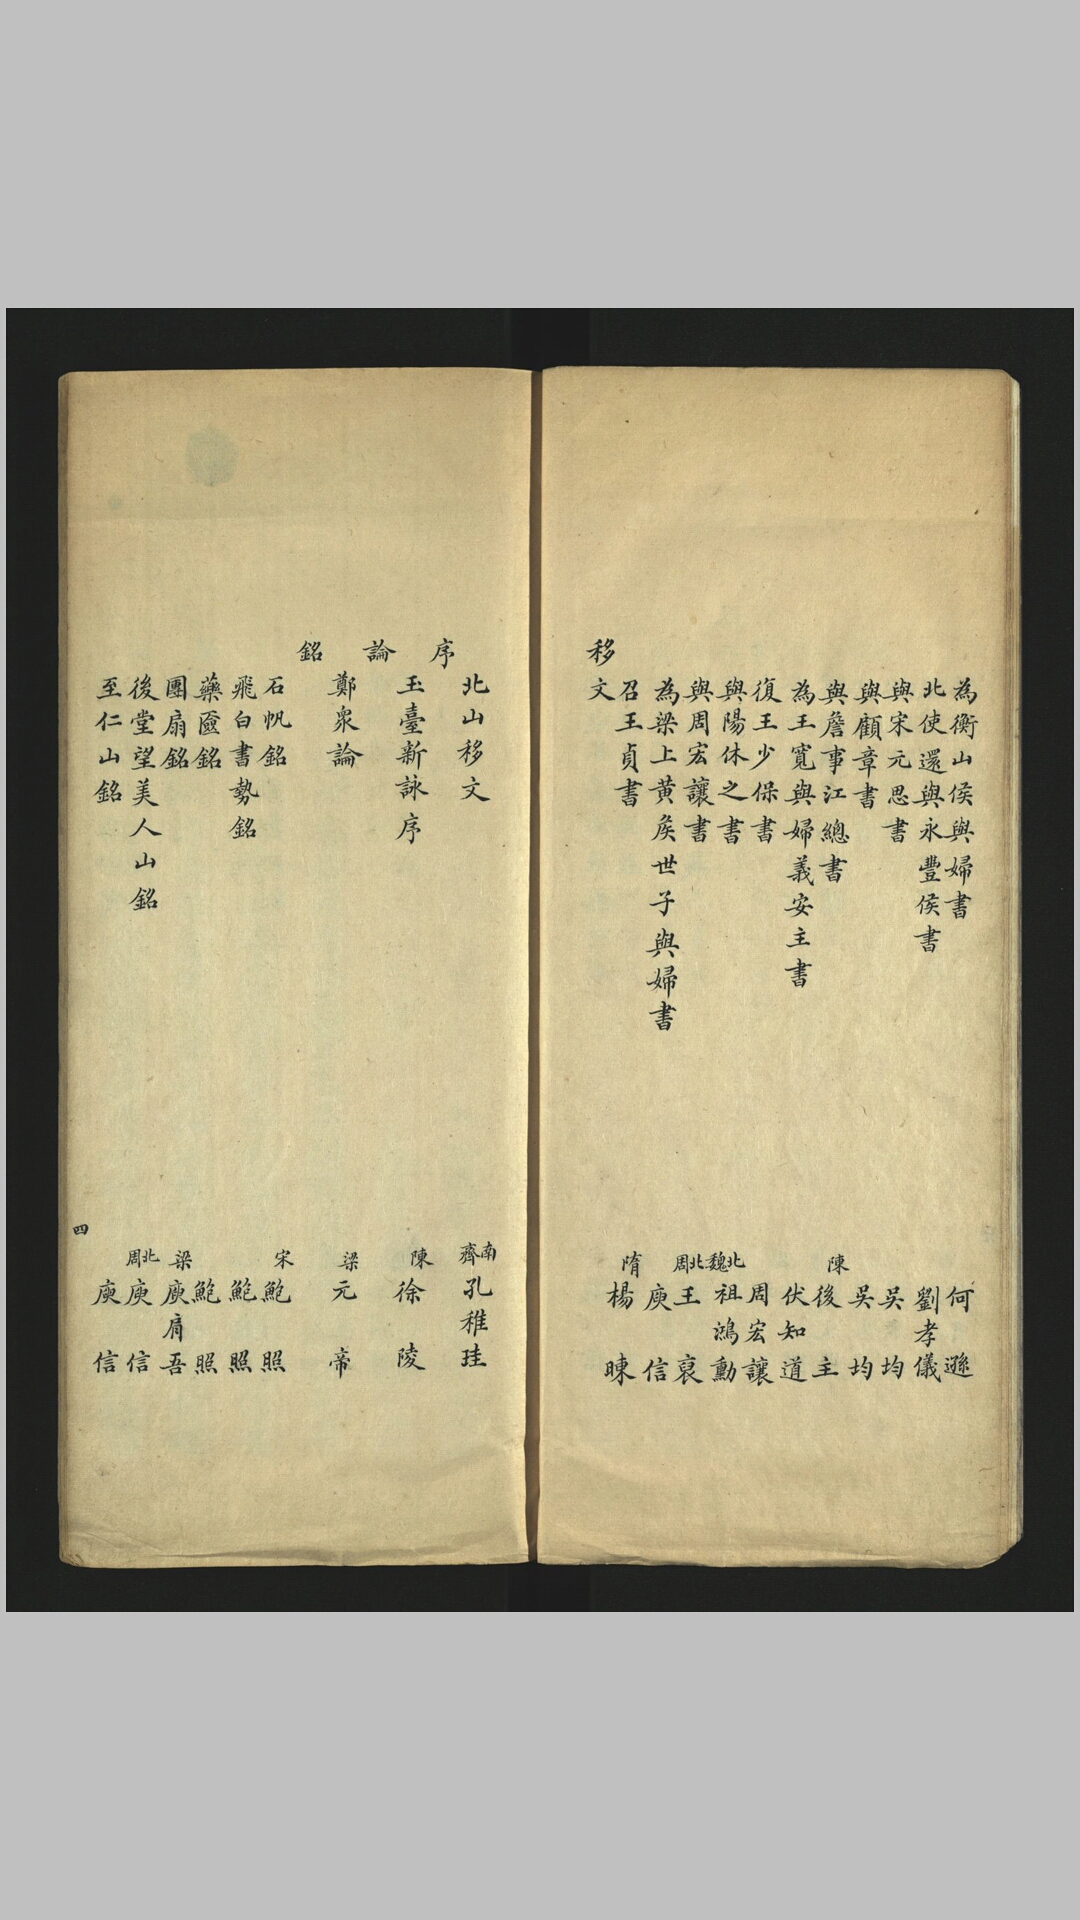 為衡山侯與婦書 何遜
北使還與永豐侯書 劉孝儀
與宋元思書 吳均
與顧章書 吳均
與詹事江總書 陳 後主
為王寬與婦義安主書 伏知道
復王少保書 周宏讓
與陽休之書 北魏 祖鴻勳
與周宏讓書 北周 王裒
為梁上黃矦世子與婦書 庾信
召王貞書 隋 楊暕
移文
北山移文 南齊 孔稚珪
序
玉臺新詠序 陳 徐陵
論
鄭眾論 梁 元帝
銘
石帆銘 宋 鮑照
飛白書勢銘 鮑照
藥奩銘 鮑照
團扇銘 梁 庾肩吾
後堂望美人山銘 北周 庾信
至仁山銘 庾信
四